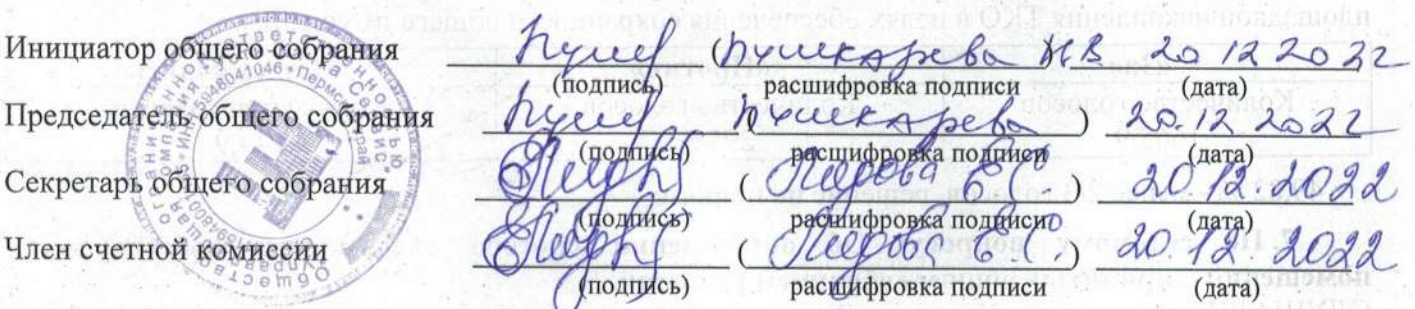 Инициатор общего собрания (Пушкарева Н.В. 20.12.2022
(подпись) расшифровка подписи (дата)
Председатель общего собрания (Пушкарева ) 20.12 2022
(подпись) расшифровка подписи (дата)
Секретарь общего собрания ( Е.С. ) 20.12.2022
(подпись) расшифровка подписи (дата)
Член счетной комиссии ( Е.С. ) 20.12.2022
(подпись) расшифровка подписи (дата)
5948041046 * Пермский край